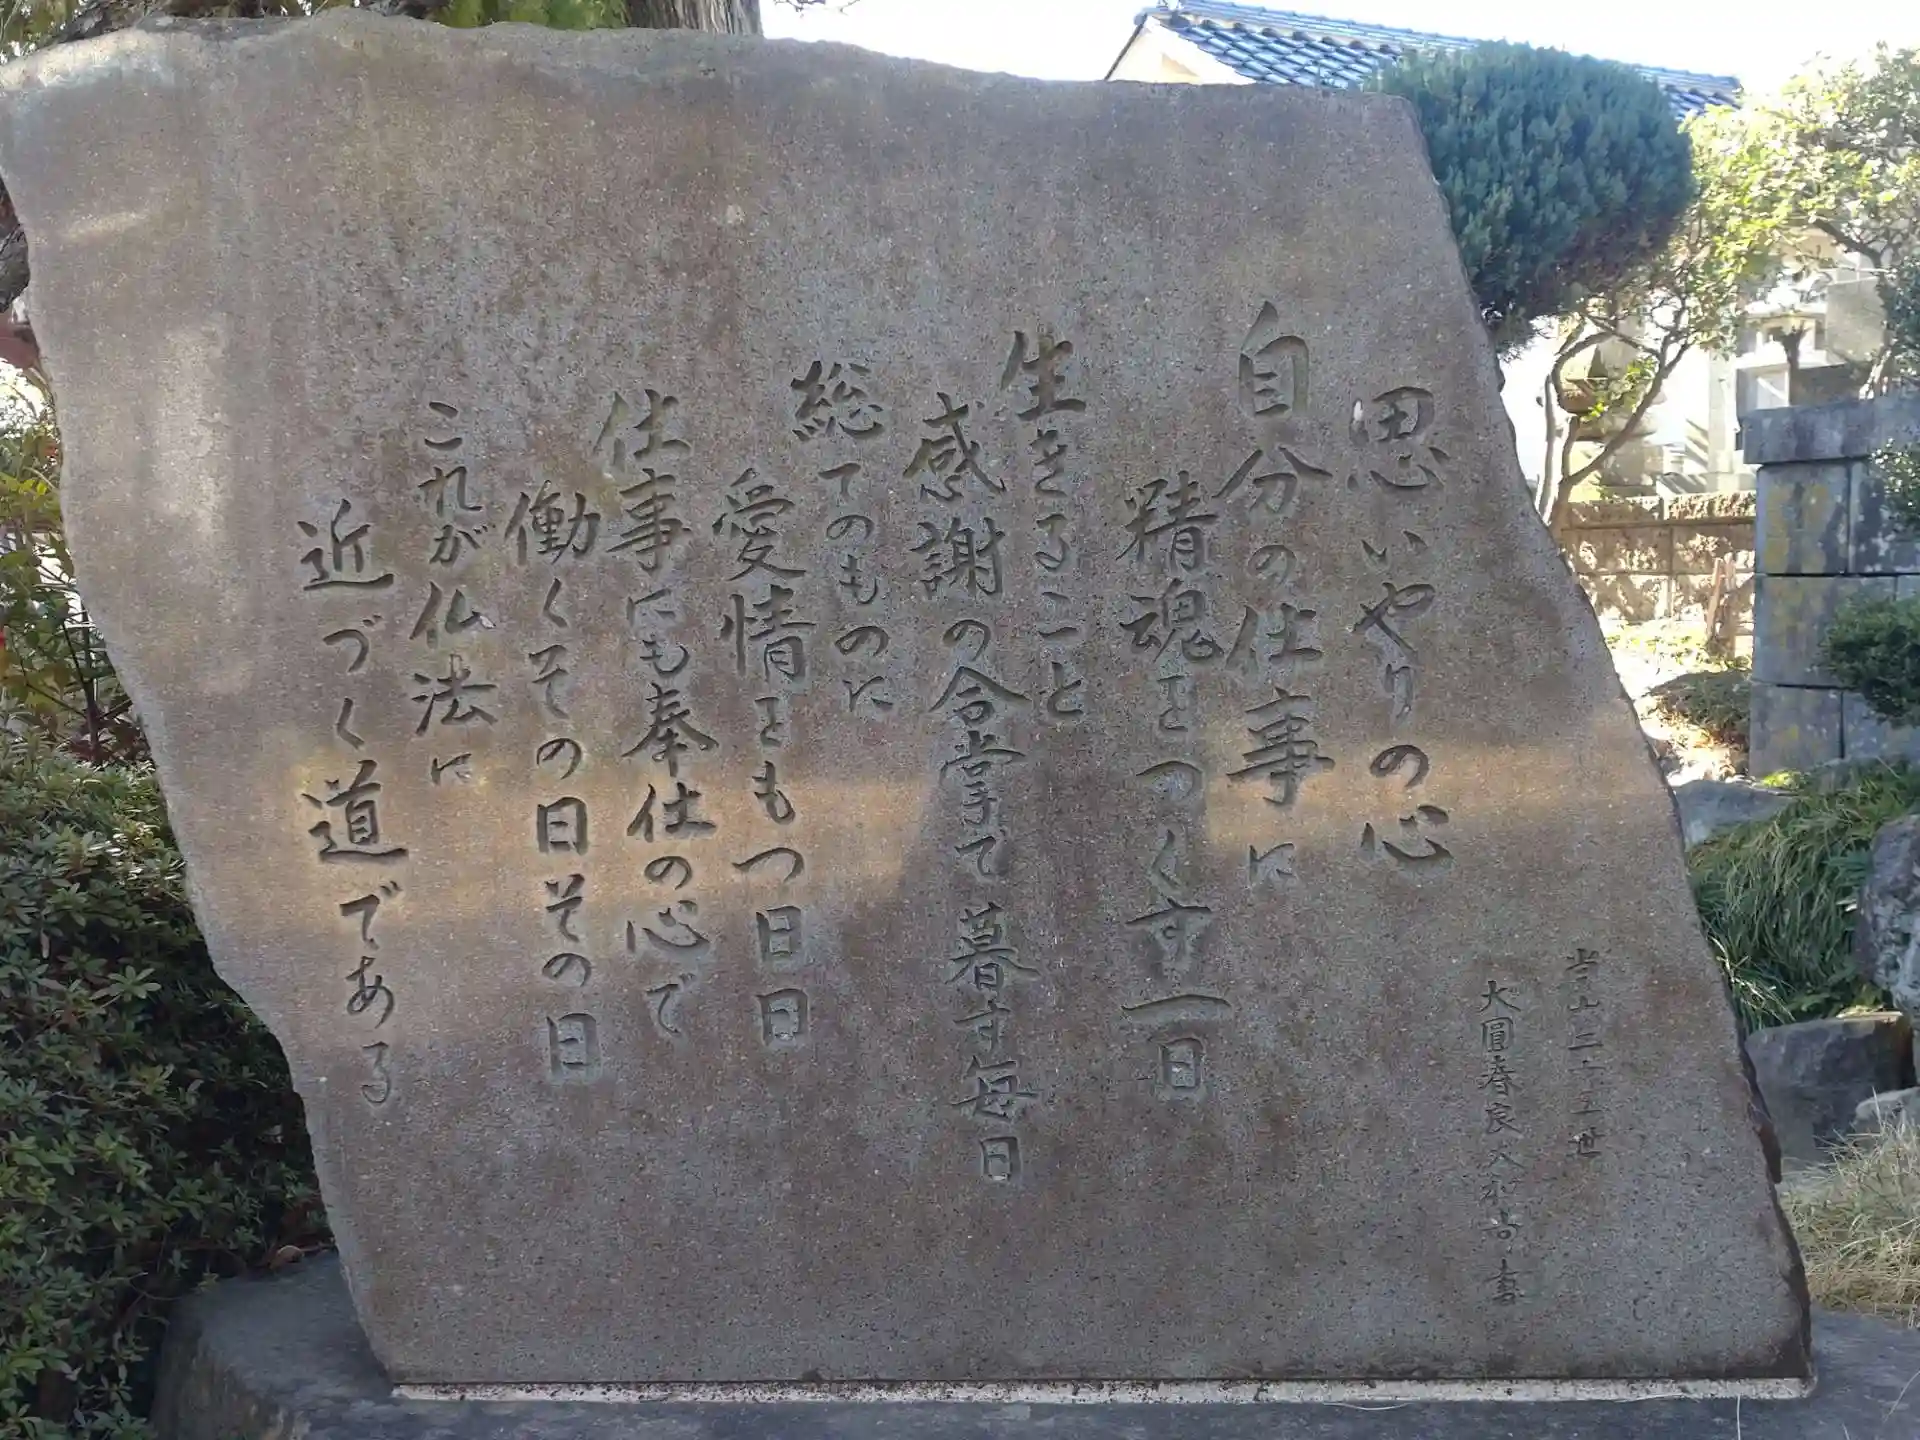 思いやりの心
当山三十五世
大圓春良大和尚書
自分の仕事に
精魂をつくす一日
生きること
感謝の合掌で暮す毎日
総てのものに
愛情をもつ日日
仕事にも奉仕の心で
働くその日その日
これが仏法に
近づく道である